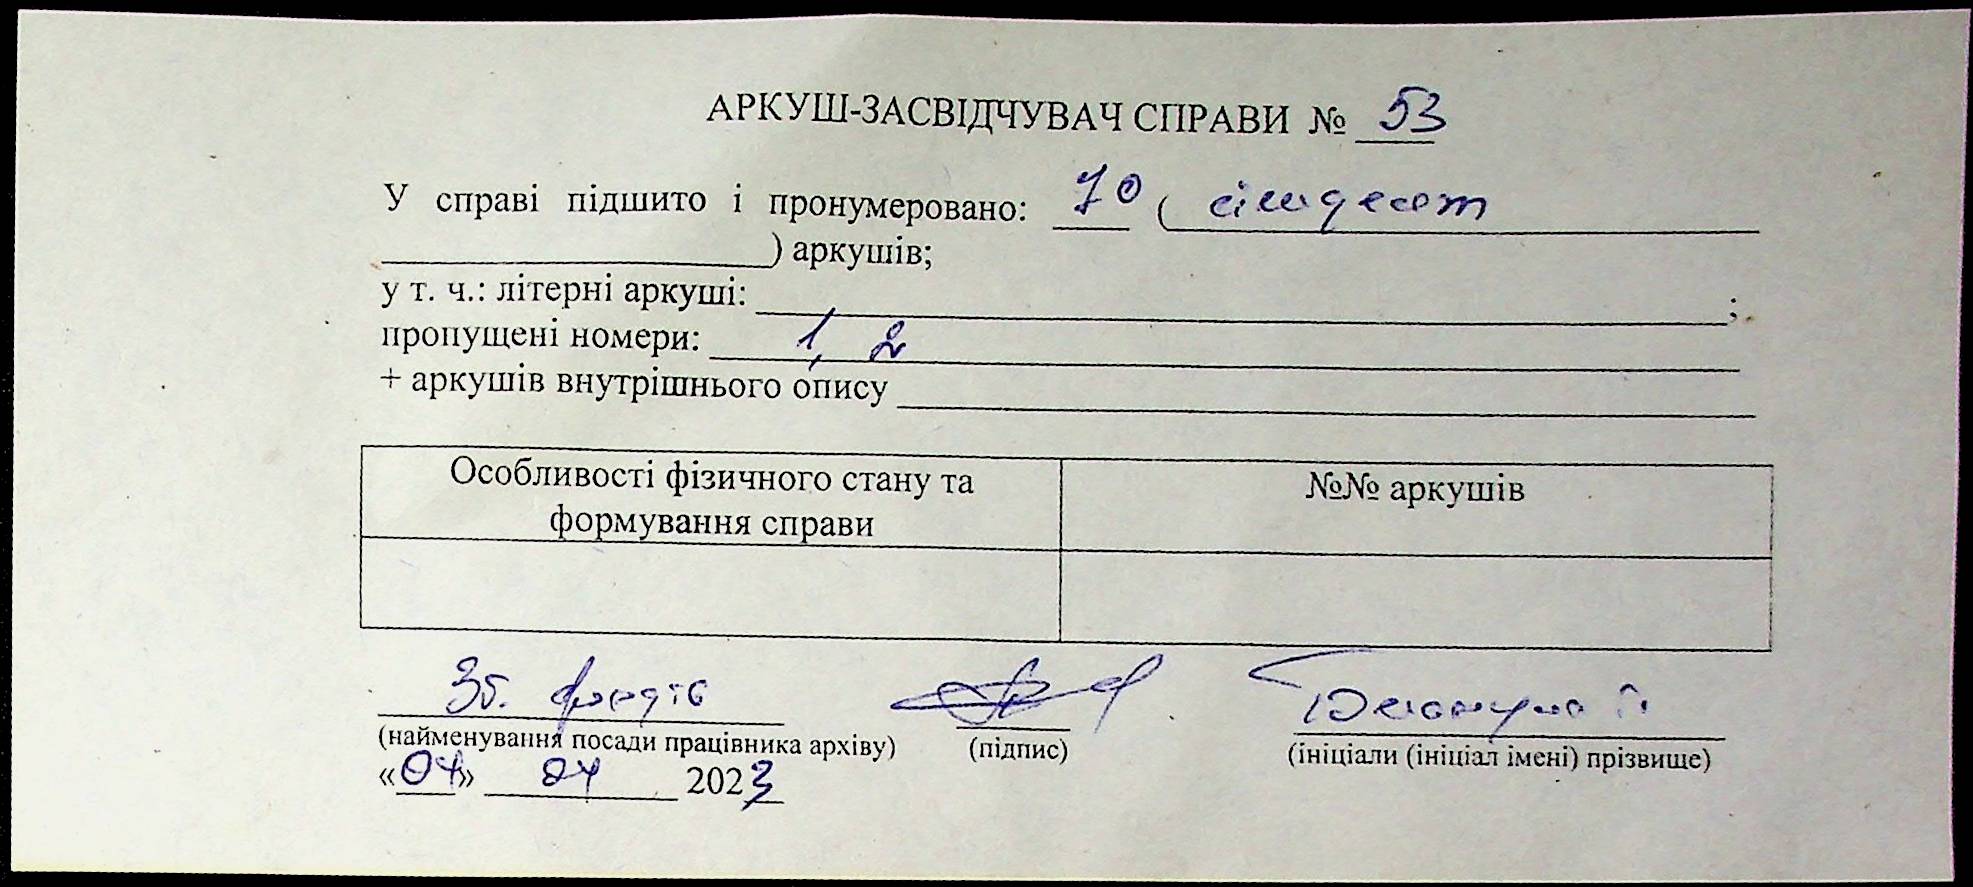 АРКУШ-ЗАСВІДЧУВАЧ СПРАВИ № 53
У справі підшито і пронумеровано: 70 ( сімдесят
) аркушів;
у т. ч.: літерні аркуші: ;
пропущені номери: 1, 2
+ аркушів внутрішнього опису
Особливості фізичного стану та
формування справи
№№ аркушів
Зб. фондів
(найменування посади працівника архіву) (підпис) (ініціали (ініціал імені) прізвище)
«04» 04 2023